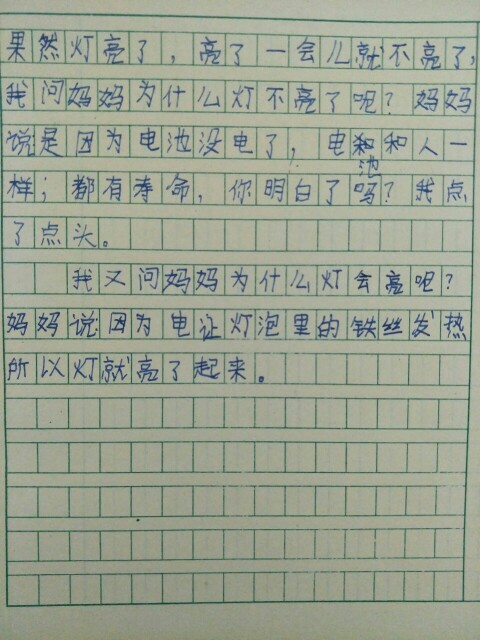 果然灯亮了，亮了一会儿就不亮了，
我问妈妈为什么灯不亮了呢？妈妈
说是因为电池没电了，电池和人一
样；都有寿命，你明白了吗？我点
了点头。
我又问妈妈为什么灯会亮呢？
妈妈说因为电让灯泡里的铁丝发热
所以灯就亮了起来。